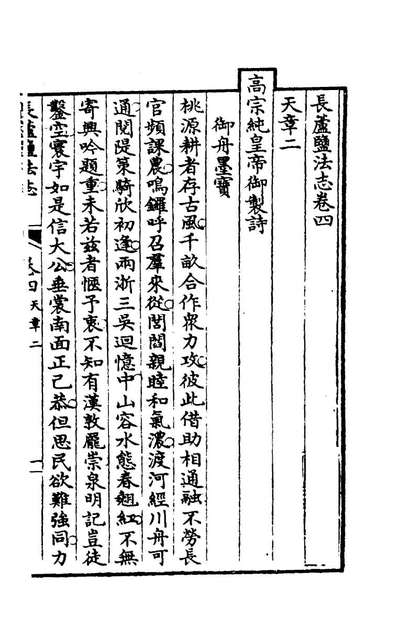 長蘆鹽法志卷四
天章二
高宗純皇帝御製詩
御舟墨寶
桃源耕者存古風千畝合作衆力攻彼此借助相通融不勞長
官頻課農鳴鑼呼召羣來從閭閻親睦和氣濃渡河經川舟可
通閱隄策騎欣初逢兩浙三吳迴憶中山容水態春翹紅不無
寄興吟題重未若茲者愜予衷不知有漢敦龐崇泉明記豈徒
鑿空寰宇如是信大公垂裳南面正己恭但思民欲難強同力
長蘆鹽法志
卷四 天章二
一